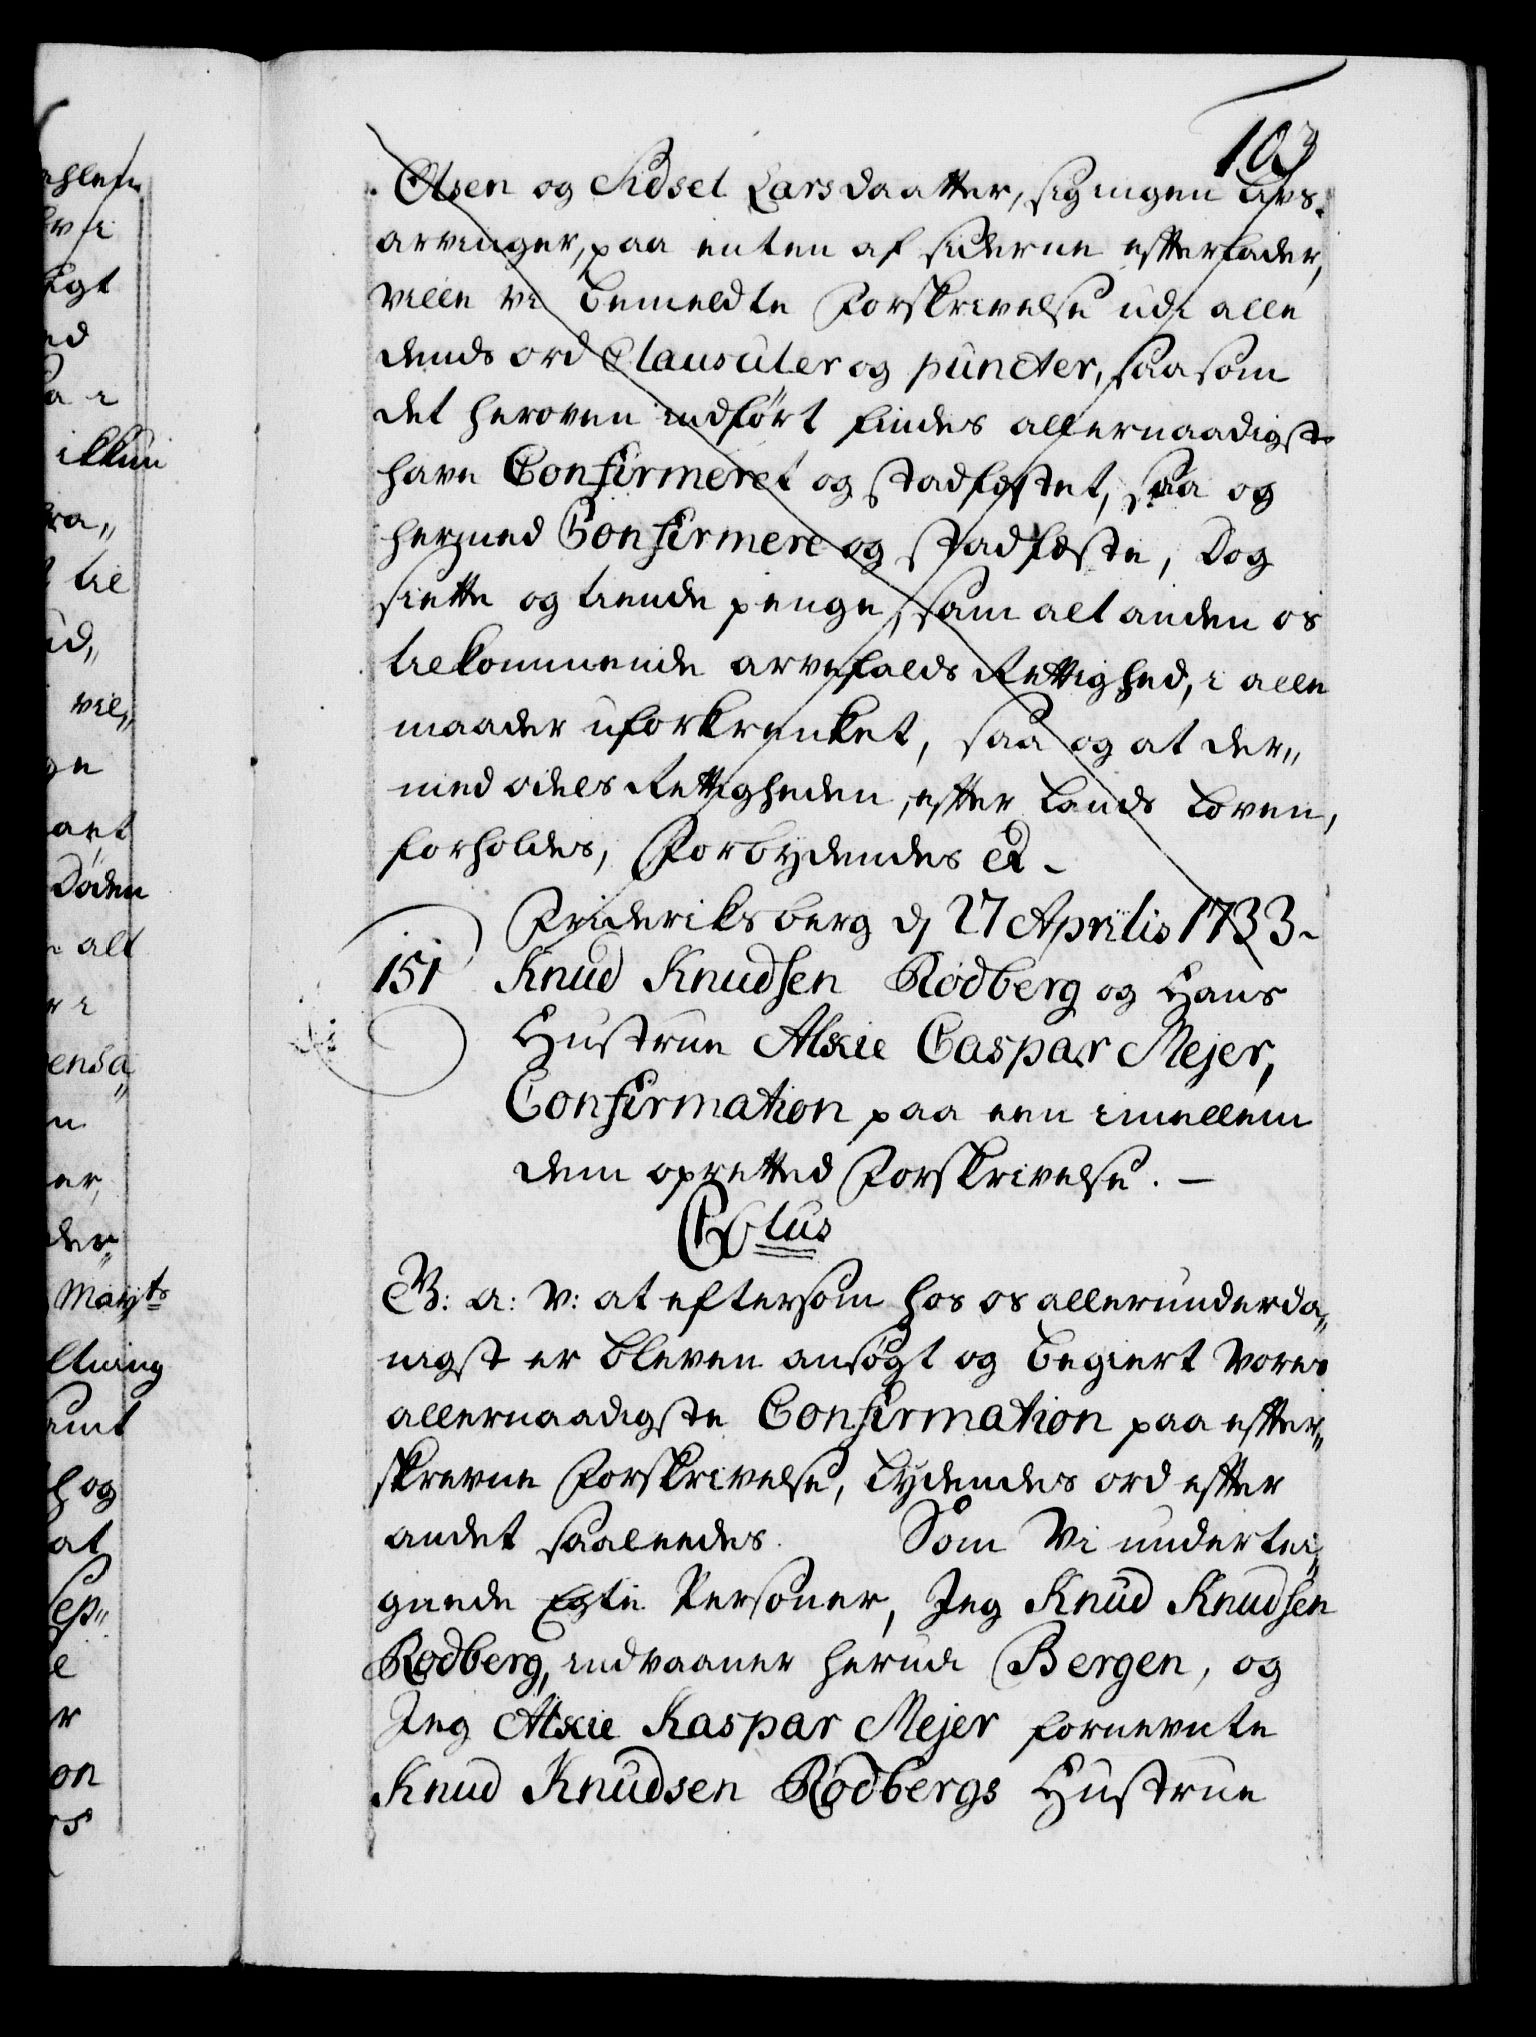 103
Olsen og Sidsel Larsdaatter, sig ingen Livs-
arvinger, paa enten af siderne efterlader,
ville vi bemeldte Forskrivelse udi alle
dends ord Clausuler og puncter, saasom
det heroven indført findes allernaadigst
have Confirmeret og stadfæstet, saa og
hermed Confirmere og stadfæste, Dog
siette og tiende penge, sam alt anden os
tilkommende arvefalds Rettighed, i alle
maader uforkrenket, saa og at der„
med odels Rettigheden, efter Lands Loven,
forholdes, Forbydendes &
Frideriksberg d 27 Aprilis 1733.
151 Knud Knudsen Rødberg og Hans
Hustrue Alxie Caspar Mejer,
Confirmation paa een imellem
dem opretted Forskrivelse. —
G: a: V: at eftersom hos os allerunderda„
nigst er bleven ansøgt og begiert Vores
allernaadigste Confirmation paa efter„
skrevne Forskrivelse, Lydendes ord efter
andet saaleedes. Som Vi undertei„
gnede Egte Personer, Jeg Knud Knudsen
Rødberg, indvaaner herudi Bergen, og
Jeg Alxie Kaspar Mejer fornevnte
Knud Knudsen Rødbergs Hustrue